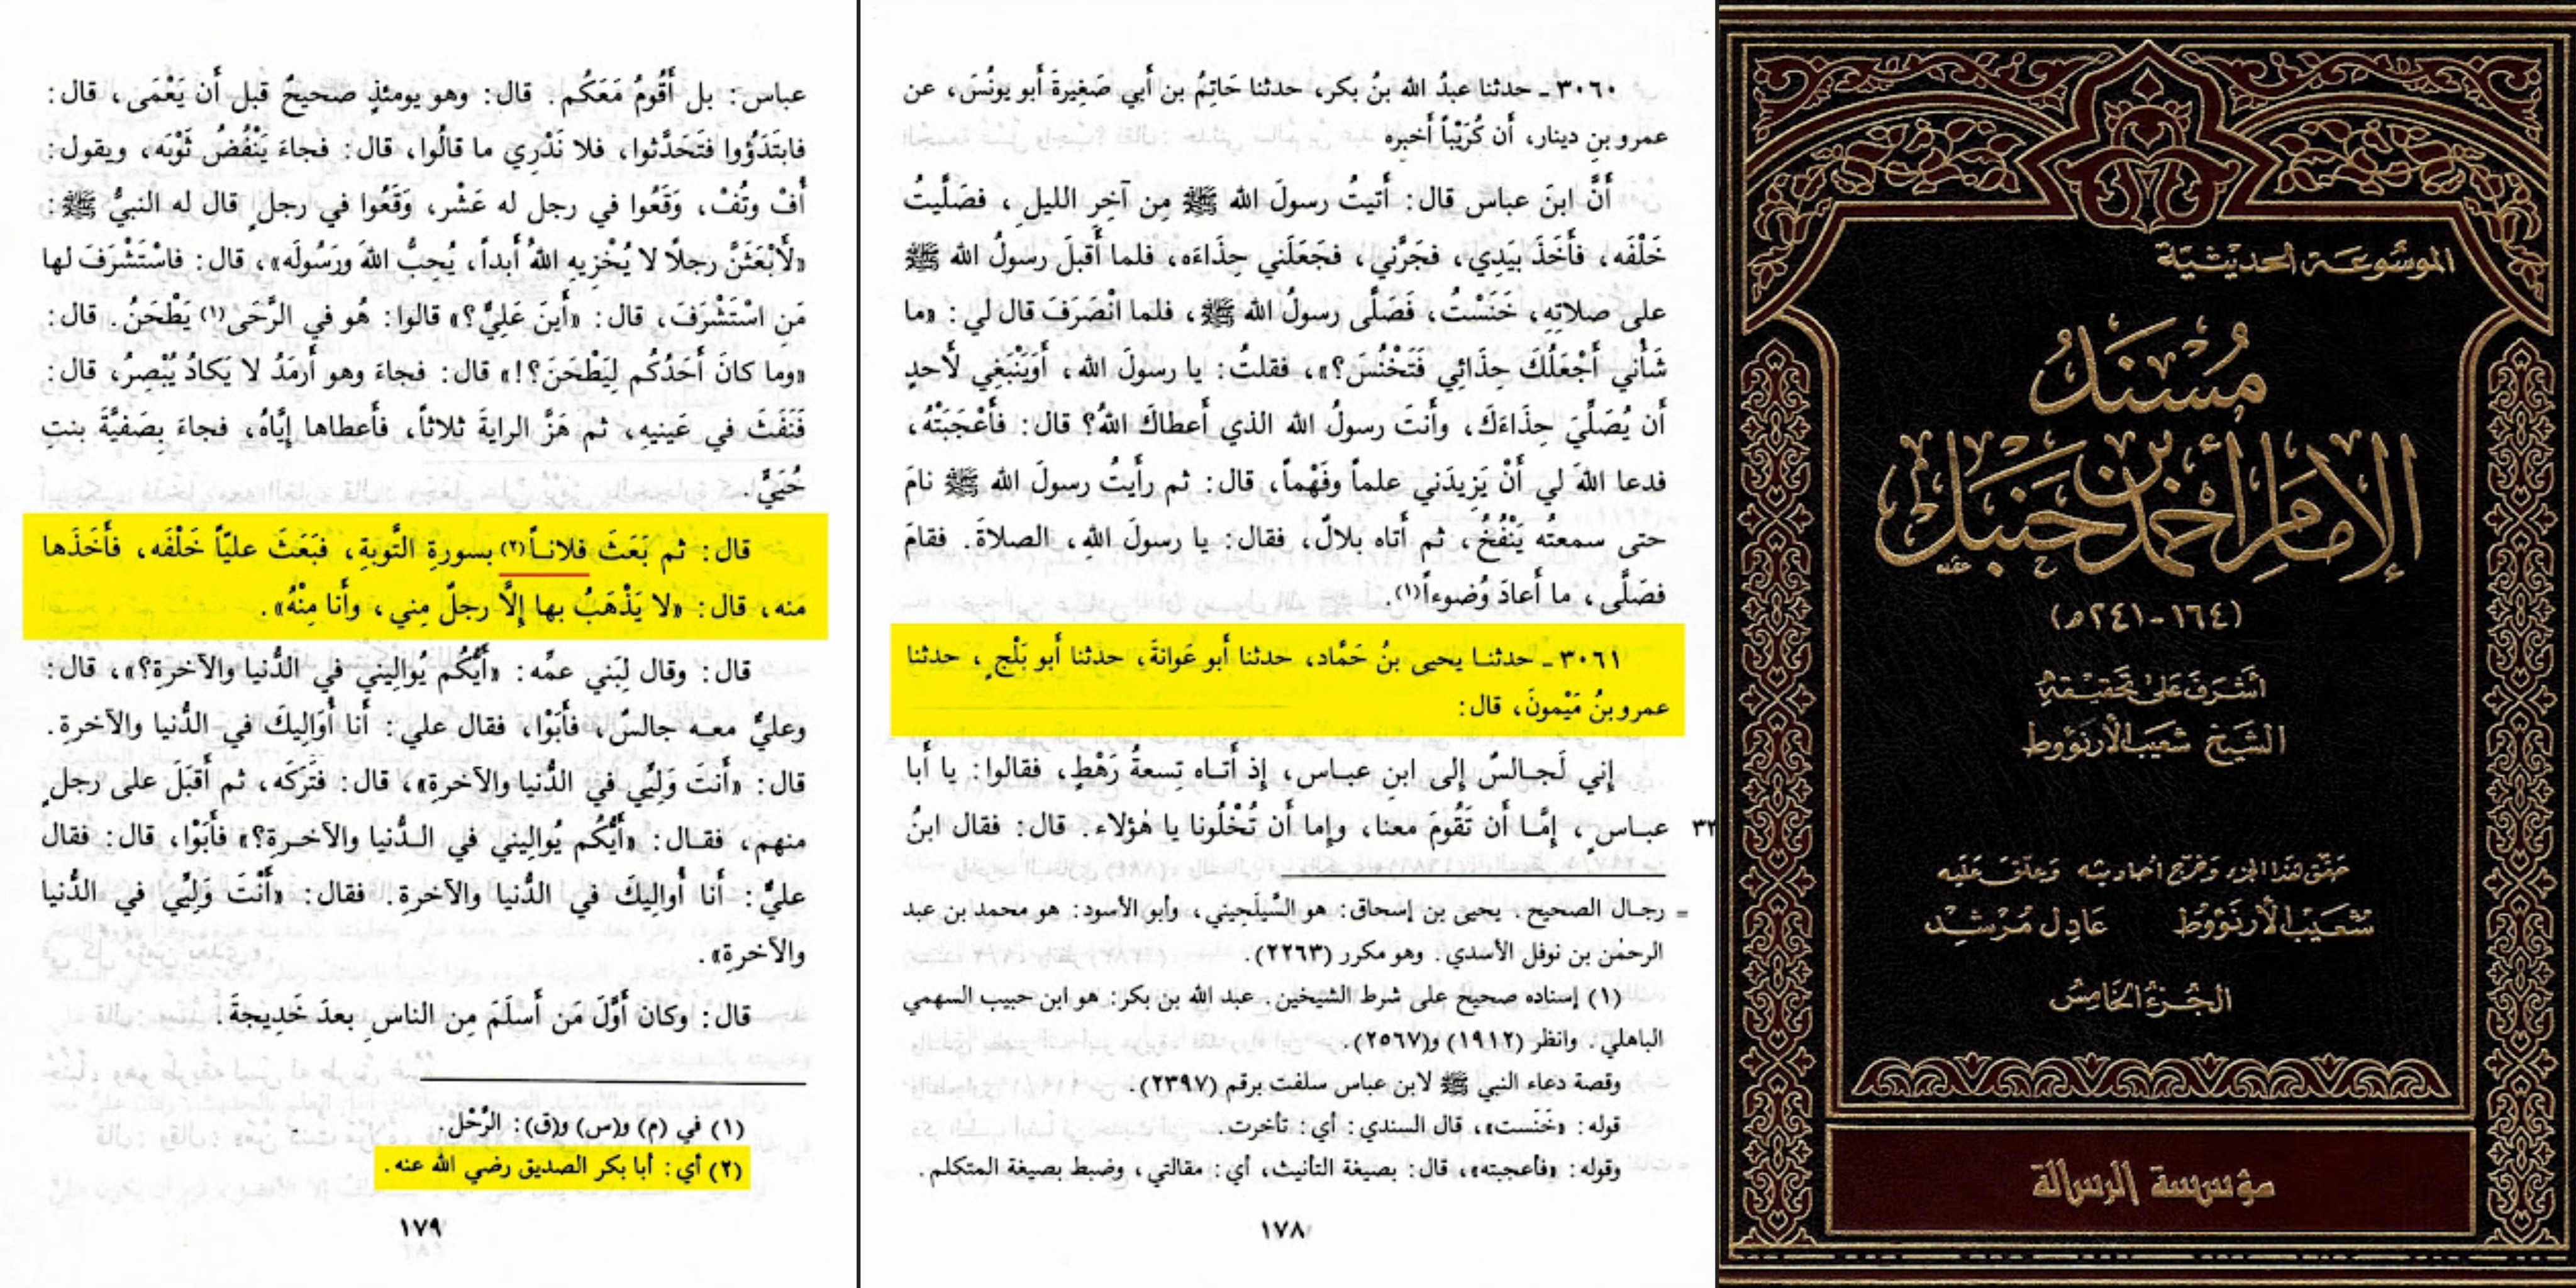 الموسوعة الحديثية
مُسْنَدُ
الإمام أحمد بن حنبل
(١٦٤-٢٤١ه)
أشرف على تحقيقه
الشيخ شعيب الأرنؤوط
حقق هذا الجزء وخرج أحاديثه وعلق عليه
شعيب الأرنؤوط عادل مرشد
الجزء الخامس
مؤسسة الرسالة
٣٠٦٠ ـ حدثنا عبدُ الله بنُ بكر، حدثنا حَاتِمُ بن أبي صَغِيرةَ أبو يونُسَ، عن
عمرو بنِ دينار، أن كُرَيْباً أخبره
أنَّ ابنَ عباس قال: أتيتُ رسولَ الله ﷺ مِن آخِرِ الليلِ، فصَلَّيتُ
خَلْفَه، فأَخَذَ بيَدِي، فجَرَّني، فجَعَلَني حِذَاءَه، فلما أَقبلَ رسولُ الله ﷺ
على صلاتِهِ، خَنَسْتُ، فَصَلَّى رسولُ اللهِ ﷺ، فلما انْصَرَفَ قال لي: «ما
شَأْني أَجْعَلُكَ حِذَائِي فَتَخْنُسَ؟»، فقلتُ: يا رسولَ الله، أَوَيَنْبَغِي لأحدٍ
أن يُصَلِّيَ حِذَاءَكَ، وأنتَ رسولُ الله الذي أَعطاكَ اللهُ؟ قال: فأَعْجَبَتْهُ،
فدعا اللهَ لي أنْ يَزِيدَني علماً وفَهْماً، قال: ثم رأيتُ رسولَ الله ﷺ نامَ
حتى سمعتُه يَنْفُخُ، ثم أتاه بلالٌ، فقال: يا رسولَ اللهِ، الصلاةَ. فقامَ
فصَلَّى، ما أَعادَ وُضوءاً(١).
٣٠٦١ ـ حدثنـا يحيى بنُ حَمَّاد، حدثنا أبو عَوانةَ، حدثنا أبو بَلْجٍ، حدثنا
عمرو بنُ مَيْمونَ، قال:
إني لَجـالسٌ إلى ابنِ عبـاس، إذ أَتـاه تِسعةُ رَهْطٍ، فقالوا: يا أبا
عبـاسٍ، إمَّـا أن تَقُومَ معنا، وإما أن تُخْلُونا يا هؤلاء. قال: فقال ابنُ
= رجـال الصحيح. يحيى بن إسحاق: هو السَّيلَحِيني، وأبو الأسود: هو محمد بن عبد
الرحمٰن بن نوفل الأسدي. وهو مكرر (٢٢٦٣).
(١) إسناده صحيح على شرط الشيخين. عبد الله بن بكر: هو ابن حبيب السهمي
الباهلي. وانظر (١٩١٢) و(٢٥٦٧).
وقصة دعاء النبي ﷺ لابن عباس سلفت برقم (٢٣٩٧).
قوله: «خَنَست»، قال السندي: أي: تأخرت.
وقوله: «فأعجبته»، قال: بصيغة التأنيث، أي: مقالتي، وضبط بصيغة المتكلم.
١٧٨
عباس: بل أَقُومُ مَعَكُم. قال: وهو يومئذٍ صحيحٌ قبل أن يَعْمَى، قال:
فابتَدَؤُوا فتَحَدَّثوا، فلا نَدْرِي ما قالُوا، قال: فجاءَ يَنْفُضُ ثَوْبَه، ويقول:
أُفْ وتُفْ، وَقَعُوا في رجل له عَشْر، وَقَعُوا في رجلٍ قال له النبيُّ ﷺ:
«لأَبْعَثَنَّ رجلًا لا يُخْزِيهِ اللهُ أبداً، يُحِبُّ اللهَ ورَسُولَه»، قال: فاسْتَشْرَفَ لها
مَنِ اسْتَشْرَفَ، قال: «أينَ عَلِيٌّ؟» قالوا: هُو في الرَّحَى(١) يَطْحَنُ. قال:
«وما كانَ أَحَدُكُم لِيَطْحَنَ؟!» قال: فجاءَ وهو أَرمَدُ لا يَكادُ يُبْصِرُ، قال:
فَنَفَثَ في عَينيهِ، ثم هَزَّ الرايةَ ثلاثاً، فأَعطاها إيَّاهُ، فجاءَ بِصَفيَّةَ بنتِ
حُيَيٍّ.
قال: ثم بَعَثَ فلانـاً(٢) بسورةِ التَّوبةِ، فبَعَثَ عليّاً خَلْفَه، فأَخَذَها
منه، قال: «لا يَذْهَبُ بها إلَّا رجلٌ مِني، وأَنا مِنْهُ».
قال: وقال لِبَني عمِّه: «أَيُّكُم يُوالِيني في الدُّنيا والآخرةِ؟»، قال:
وعليٌّ معـه جالسٌ، فأَبَوْا، فقال علي: أَنا أُوَالِيكَ في الدُّنيا والآخرةِ.
قال: «أَنتَ وَلِيِّي في الدُّنيا والآخرةِ»، قال: فتَرَكَه، ثم أَقبَلَ على رجلٍ
منهم، فقـال: «أَيُّكُم يُوالِيني في الـدُّنيا والآخـرةِ؟» فأَبَوْا، قال: فقال
عليٌّ: أَنا أُوالِيكَ في الدُّنيا والآخرةِ. فقال: «أَنْتَ وَلِيِّي في الدُّنيا
والآخرةِ».
قال: وكان أَوَّلَ مَن أَسلَمَ مِن الناسِ بعدَ خَدِيجةَ.
(١) في (م) و(س) و(ق): الرَّحْل.
(٢) أي: أبا بكر الصديق رضي الله عنه.
١٧٩